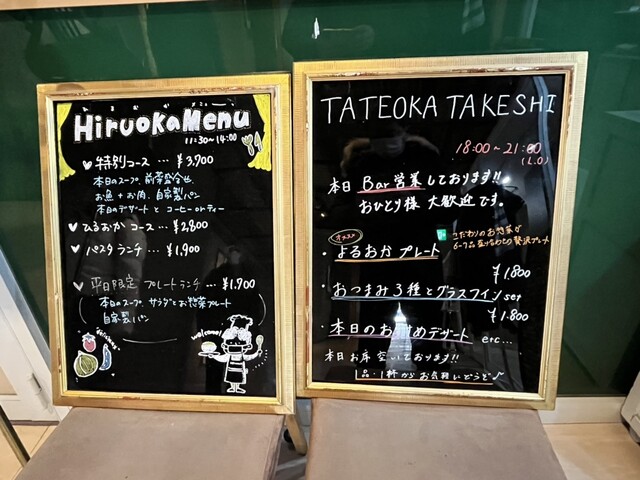 ひるおかメニュー
HiruokaMenu
11:30~14:00
特別コース … ¥3,700
本日のスープ、前菜盛合せ
お魚+お肉、自家製パン
本日のデザートとコーヒーorティー
ひるおかコース … ¥2,800
パスタランチ … ¥1,900
平日限定 プレートランチ … ¥1,700
本日のスープ、サラダとお惣菜プレート
自家製パン
welcome!
TATEOKA TAKESHI
18:00~21:00
(L.O)
本日 Bar営業しております!!
おひとり様 大歓迎です。
オススメ
こだわりのお惣菜が
6~7品盛り合わせの贅沢プレート
・よるおか プレート
¥1,800
・おつまみ3種とグラスワインset
¥1,800
・本日のおすすめデザート etc...
本日お席空いております!!
1品・1杯からお気軽にどうぞ♪